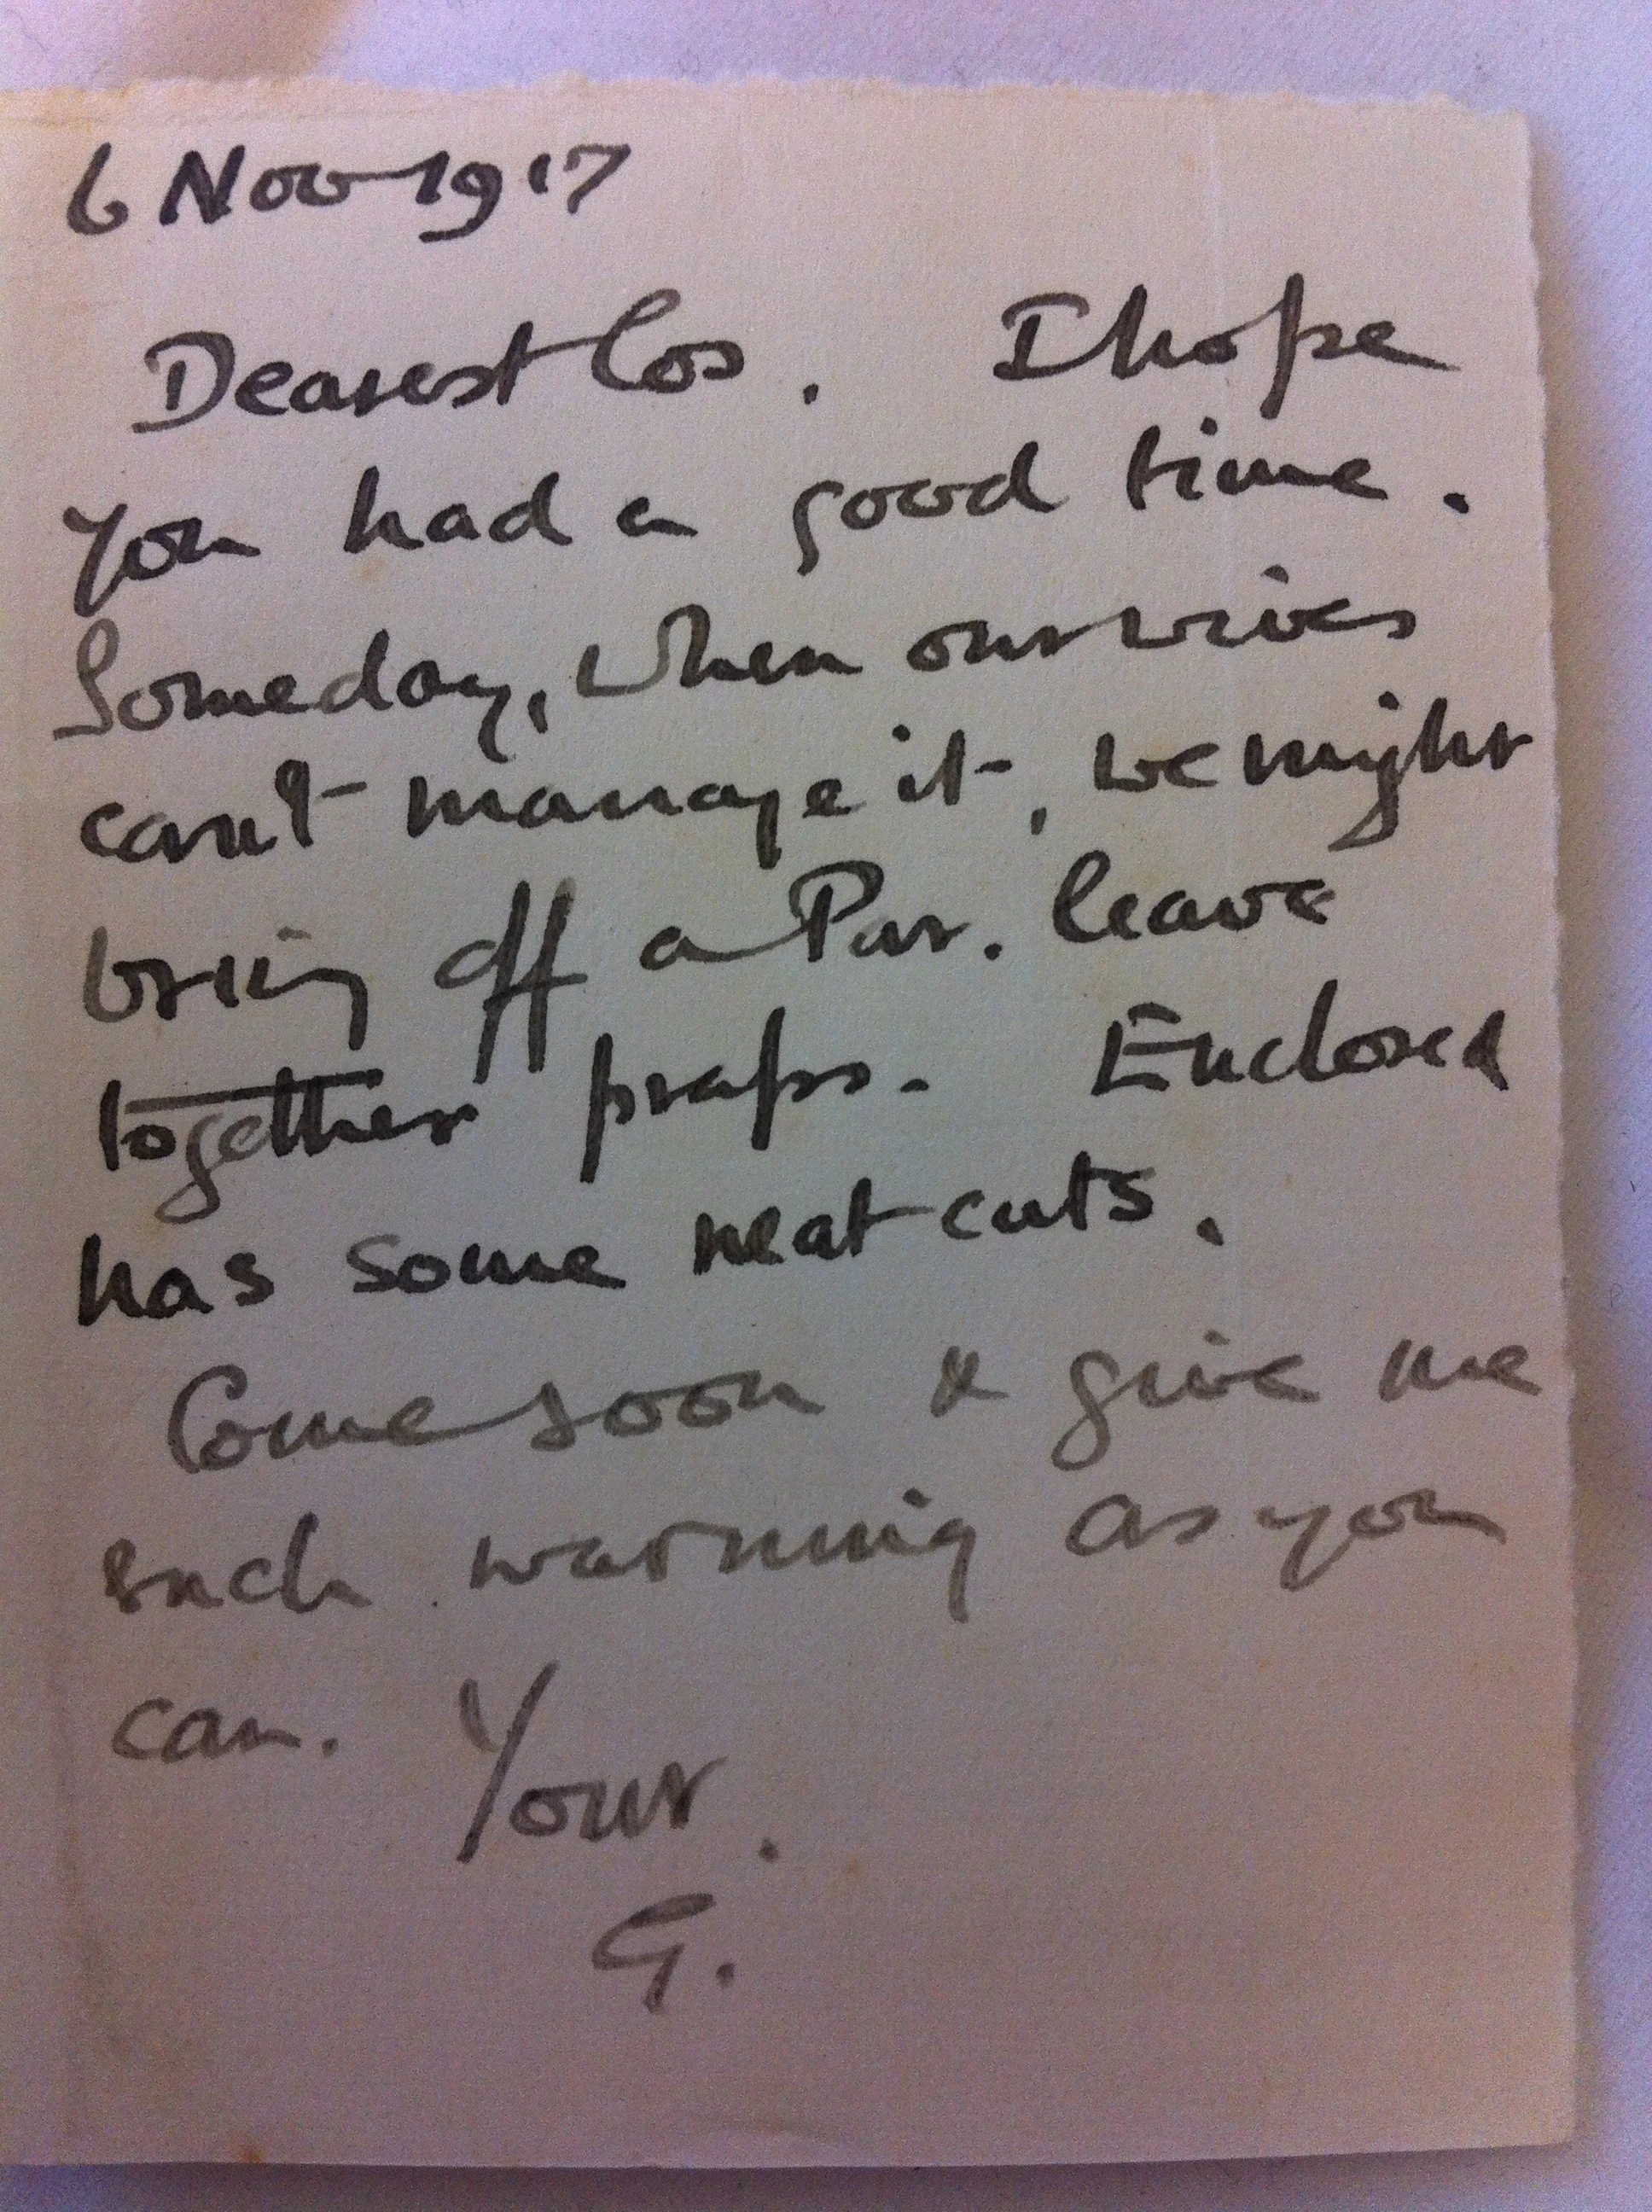 6 Nov 1917
Dearest Cos. I hope
you had a good time.
Someday, when our wives
can't manage it, we might
bring off a Par. leave
together praps. Enclosed
has some neat cuts.
Come soon & give me
such warning as you
can. Your.
G.